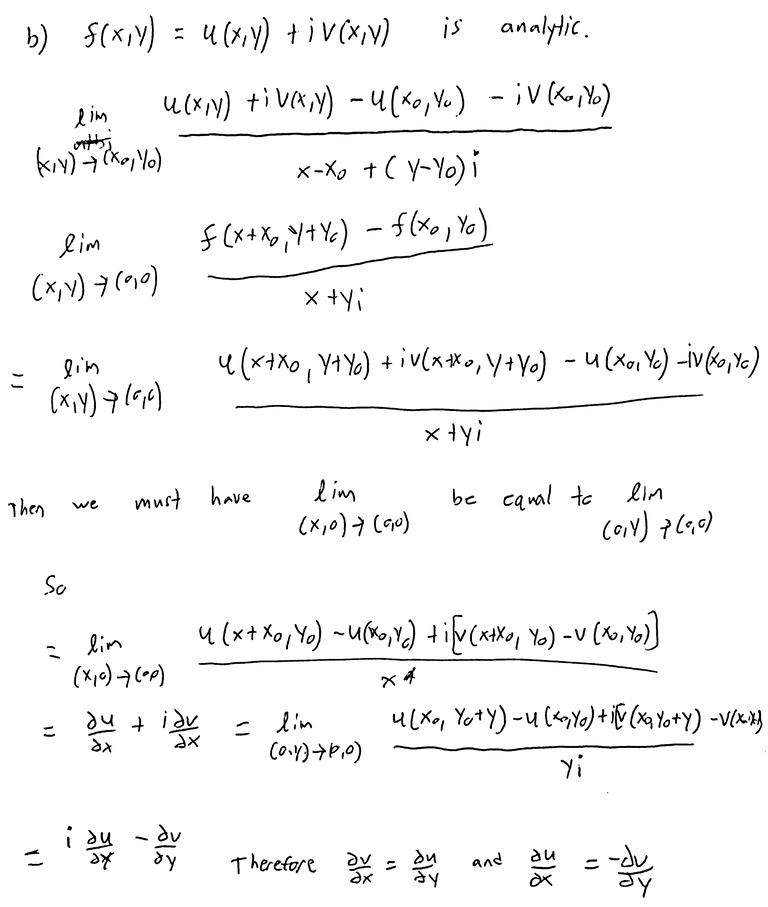 b) f(x,y) = u(x,y) + iv(x,y) is analytic.
lim (x,y)→(x₀,y₀) [u(x,y) + iv(x,y) - u(x₀,y₀) - iv(x₀,y₀)] / [x-x₀ + (y-y₀)i]
lim (x,y)→(0,0) [f(x+x₀,y+y₀) - f(x₀,y₀)] / [x+yi]
= lim (x,y)→(0,0) [u(x+x₀, y+y₀) + iv(x+x₀,y+y₀) - u(x₀,y₀) - iv(x₀,y₀)] / [x+yi]
Then we must have lim (x,0)→(0,0) be equal to lim (0,y)→(0,0)
So
= lim (x,0)→(0,0) [u(x+x₀,y₀) - u(x₀,y₀) + i[v(x+x₀, y₀) - v(x₀,y₀)]] / x
= ∂u/∂x + i∂v/∂x = lim (0,y)→(0,0) [u(x₀, y₀+y) - u(x₀,y₀) + i[v(x₀,y₀+y) - v(x₀,y₀)]] / yi
= i ∂u/∂y - ∂v/∂y Therefore ∂v/∂x = ∂u/∂y and ∂u/∂x = -∂v/∂y